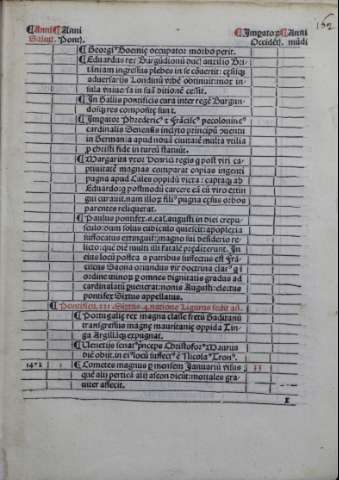 ¶Anni ¶Anni ¶Impator ¶Anni
Salut. Pont. Occidēt. mūdi
162
¶Georgiꝰ Boemię occupatoꝛ moꝛbo perit.
¶Eduardus rex Burgūdionū duc auxilio Bri
tāniam ingressus plebes in se cōuertit: cęsisqꝫ
aduersarijs Londinū vrbē obtinuit: moꝛ in-
sula vniuersa in suā ditionē cessit.
¶In Gallijs pontificis cura inter regē Burgun
dosqꝫ res composite sunt.
¶Impatoꝛ Phredericꝰ
cardinalis Senensis inclyto principū
in Germania: apud nouā ciuitatē multa vtilia
p christi fide in turcū statuit.
¶Margarita vxoꝛ Henrici regis post viri ca-
ptiuitatē magnas comparat copias ingenti
pugna apud oppidū victa: captaqꝫ ab
Eduardo: postmodū carcere eā cū viro extin
gui curauit. nam illoꝝ filiꝰ pugna cęsus oꝛbos
parentes reliquerat.
¶Paulus pontifex augusti in diei crepu-
sculo: dum solus cubiculo quiescit: apoplexia
suffocatus extinguit: magno sui desiderio re-
licto: quē diē multi illi fatalē prędixerunt. In
eius locū postea a patribus suffectus est Frā-
ciscus Saona oriundus vir doctrina clarꝰ
oꝛdine minoꝝ p omnes dignitatis gradus ad
cardinalatū prouectus: nonis Augusti electus
pontifex Sixtus appellatus.
¶Pontificū Sixtus .4. natione Ligurus sedit añ.
¶Poꝛtugalię rex magna classe fretū Gaditanū
transgressus magnę mauritanię oppida Tin-
ga Argillāqꝫ expugnat.
¶Venetijs senatꝰ prīceps Christofoꝛꝰ Maurus
diē obijt. in eiꝰ locū suffectꝰ ē Nicolaꝰ Tronꝰ.
1472 1 ¶Cometes magnus p mensem Januariū visus 33
quē alij perticā alij asconē dicūt: moꝛtales gra-
uiter affecit.